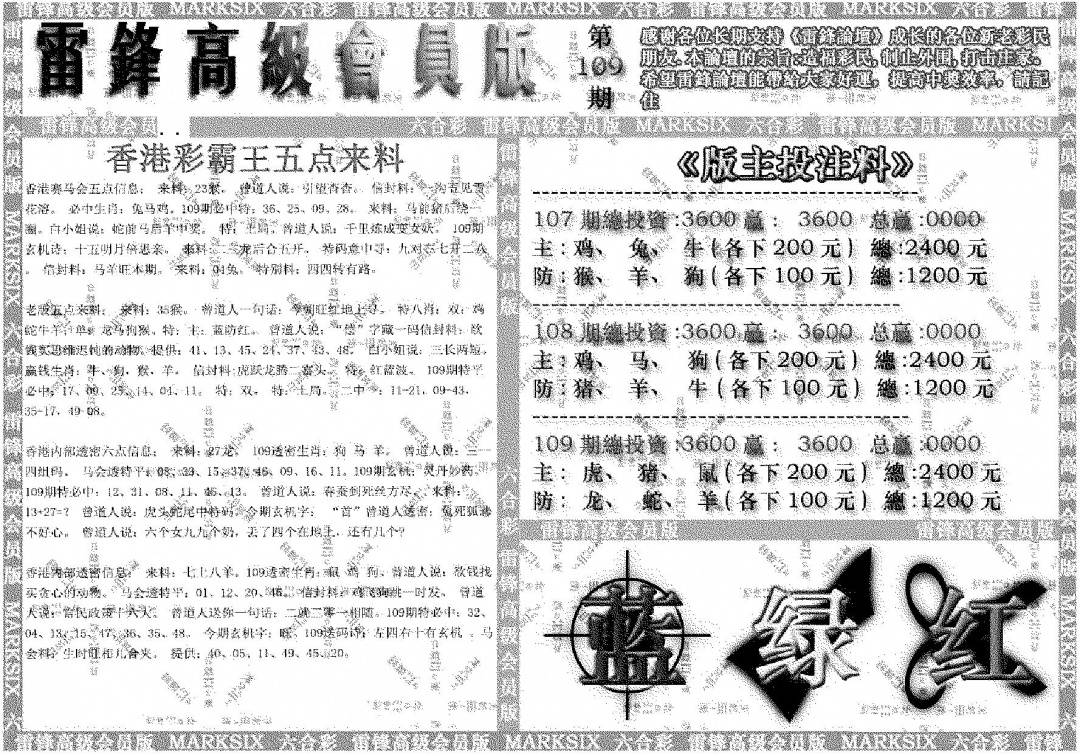 雷鋒高級會員版
第109期
感谢各位长期支持《雷鋒論壇》成长的各位新老彩民
朋友.本論壇的宗旨:造福彩民,制止外围,打击庄家。
希望雷鋒論壇能帶給大家好運，提高中獎效率，請記
住
雷锋高级会员
六合彩 雷锋高级会员版 MARKSIX 六合彩 雷锋高级会员版 MARKSI
香港彩霸王五点来料
香港赛马会五点信息： 来料：23猴。 曾道人说：引望杏杳。 信封料：一沟春见雪
花溶。 必中生肖：兔马鸡。109期必中特：36、25、09、28。 来料：马前猪后绕一
圈。白小姐说：蛇前马后羊中奖。 特：土局。曾道人说：千里炼成变女妖。 109期
玄机诗：十五明月倍思亲。 来料：二龙后合五开。 特码意中寻：九对在七开二八
。 信封料：马羊旺本期。 来料：04兔。 特别料：四四转有路。
老版五点来料： 来料：35猴。 曾道人一句话： 今朝旺红地上寻。 特八肖：双：鸡
蛇牛羊：单：龙马狗猴。特：主：蓝防红。 曾道人说：“德”字藏一码信封料：欲
钱买思维迟钝的动物。提供：41、13、45、24、37、43、48。 白小姐说：三长两短。
赢钱生肖：牛、狗、猴、羊。 信封料:虎跃龙腾一赛头。 特：红蓝波。 109期特平
必中：17、09、25、14、04、11。 特：双。 特：土局。 二中一：11-21、09-43、
35-17、49-08。
香港内部透密六点信息： 来料：27龙。 109透密生肖：狗 马 羊。 曾道人说：三一
四组码。 马会透特平：08、39、15、37、46、09、16、11。109期玄机：灵丹妙药。
109期特必中：12、31、08、11、06、13。 曾道人说：春蚕到死丝方尽。 来料：
13+27=？ 曾道人说：虎头蛇尾中特码。今期玄机字： “首”曾道人透密：兔死狐悲
不好心。 曾道人说：六个女九九个奶，丢了四个在地上，还有几个?
香港内部透密信息： 来料：七上八羊。109透密生肖：鼠 鸡 狗。曾道人说：欲钱找
买贪心的动物。 马会透特平：01、12、20、46。 信封料：鸡飞狗跳一时发。 曾道
人说：富民政策十六大。 曾道人送你一句话：二跳三零一相随。109期特必中：32、
04、13、15、47、36、35、48。 今期玄机字：旺。109送码诗：左四右十有玄机 。马
会料：生时旺相儿食夹。 提供：40、05、11、49、45、20。
《版主投注料》
107 期總投資:3600 赢： 3600 总赢:0000
主: 鸡、 兔、 牛(各下 200 元) 總:2400 元
防: 猴、 羊、 狗(各下 100 元) 總:1200 元
108 期總投資:3600 赢： 3600 总赢:0000
主: 鸡、 马、 狗(各下 200 元) 總:2400 元
防: 猪、 羊、 牛(各下 100 元) 總:1200 元
109 期總投資:3600 赢： 3600 总赢:0000
主: 虎、 猪、 鼠(各下 200 元) 總:2400 元
防: 龙、 蛇、 羊(各下 100 元) 總:1200 元
雷锋高级会员版 雷锋高级会员版
藍 绿 红
雷锋高级会员版 MARKSIX 六合彩 雷锋高级会员版 MARKSIX 六合彩 雷锋高级会员版 MARKSIX 六合彩 雷锋高级会员版